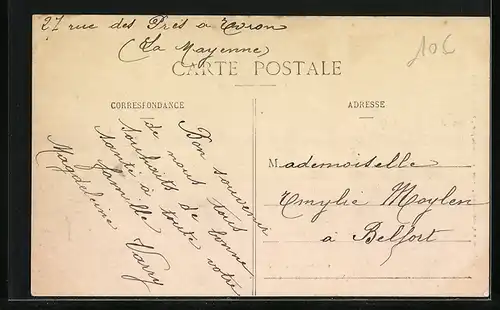 27 rue des Prés a Evron
(La Mayenne)
106
CARTE POSTALE
CORRESPONDANCE
ADRESSE
Bon souvenir
de nous tous
souhaits de bonne
santé à toute votre
famille Varry
Magdeleine
Mademoiselle
Emylie Moylen
a Belfort